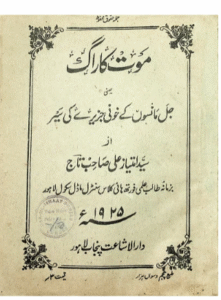 موت کا راگ
یعنی
جل مانسوں کے خونی جزیرے کی سیر
از
سید امتیاز علی صاحب تاج
بزمانہ طالب علمی فورتھ ہائی کلاس سنٹرل ماڈل سکول لاہور
۱۹۲۵ء
دارالاشاعت پنجاب لاہور